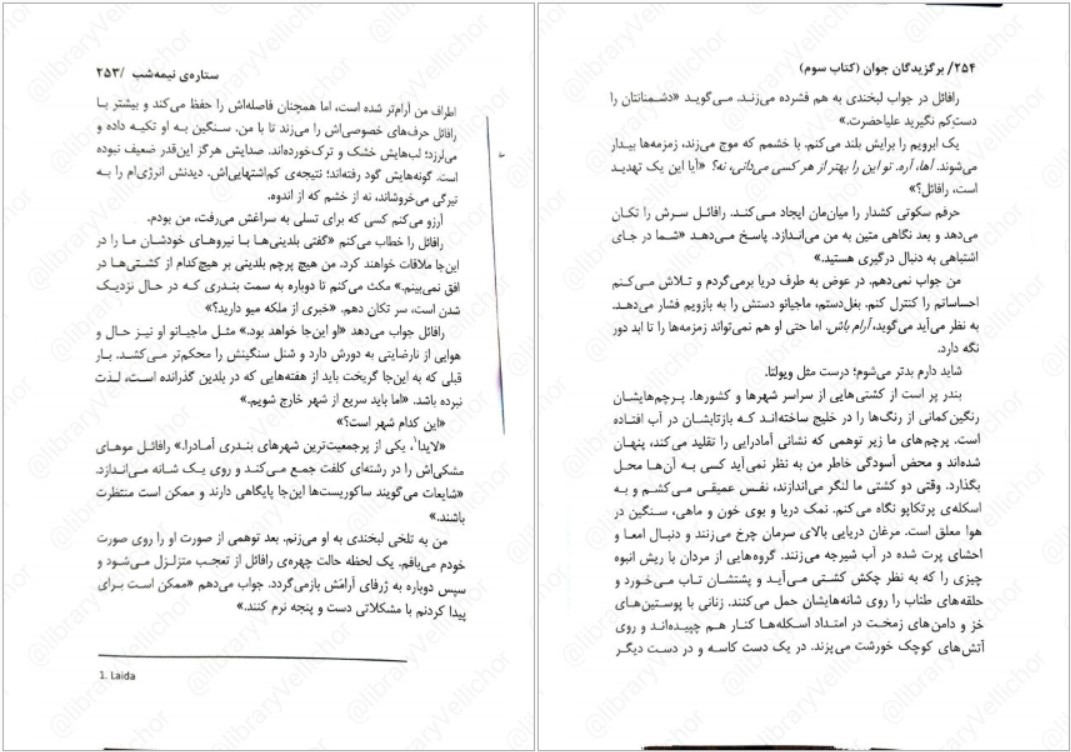 ستاره‌ی نیمه‌شب /۲۵۳
اطراف من آرام‌تر شده است، اما همچنان فاصله‌اش را حفظ می‌کند و بیشتر با
رافائل حرف‌های خصوصی‌اش را می‌زند تا با من. سنگین به او تکیه داده و
می‌لرزد؛ لب‌هایش خشک و ترک‌خورده‌اند. صدایش هرگز این‌قدر ضعیف نبوده
است. گونه‌هایش گود رفته‌اند؛ نتیجه‌ی کم‌اشتهایی‌اش. دیدنش انرژی‌ام را به
تیرگی می‌خروشاند، نه از خشم که از اندوه.
آرزو می‌کنم کسی که برای تسلی به سراغش می‌رفت، من بودم.
رافائل را خطاب می‌کنم «گفتی بلدینی‌ها با نیروهای خودشان ما را در
این‌جا ملاقات خواهند کرد. من هیچ پرچم بلدینی بر هیچ‌کدام از کشتی‌ها در
افق نمی‌بینم.» مکث می‌کنم تا دوباره به سمت بندری که در حال نزدیک
شدن است، سر تکان دهم. «خبری از ملکه میو دارید؟»
رافائل جواب می‌دهد «او این‌جا خواهد بود.» مثل ماجیانو او نیز حال و
هوایی از نارضایتی به دورش دارد و شنل سنگینش را محکم‌تر می‌کشد. بار
قبلی که به این‌جا گریخت باید از هفته‌هایی که در بلدین گذرانده است، لذت
نبرده باشد. «اما باید سریع از شهر خارج شویم.»
«این کدام شهر است؟»
«لایدا¹، یکی از پرجمعیت‌ترین شهرهای بندری آمادرا.» رافائل موهای
مشکی‌اش را در رشته‌ای کلفت جمع می‌کند و روی یک شانه می‌اندازد.
«شایعات می‌گویند ساکوریست‌ها این‌جا پایگاهی دارند و ممکن است منتظرت
باشند.»
من به تلخی لبخندی به او می‌زنم. بعد توهمی از صورت او را روی صورت
خودم می‌بافم. یک لحظه حالت چهره‌ی رافائل از تعجب متزلزل می‌شود و
سپس دوباره به ژرفای آرامَش بازمی‌گردد. جواب می‌دهم «ممکن است برای
پیدا کردنم با مشکلاتی دست و پنجه نرم کنند.»
1. Laida
۲۵۴/ برگزیدگان جوان (کتاب سوم)
رافائل در جواب لبخندی به هم فشرده می‌زند. می‌گوید «دشمنانتان را
دستِ‌کم نگیرید علیاحضرت.»
یک ابرویم را برایش بلند می‌کنم. با خشمم که موج می‌زند، زمزمه‌ها بیدار
می‌شوند. آها، آره. تو این را بهتر از هر کسی می‌دانی، نه؟ «آیا این یک تهدید
است، رافائل؟»
حرفم سکوتی کشدار را میان‌مان ایجاد می‌کند. رافائل سرش را تکان
می‌دهد و بعد نگاهی متین به من می‌اندازد. پاسخ می‌دهد «شما در جای
اشتباهی به دنبال درگیری هستید.»
من جواب نمی‌دهم. در عوض به طرف دریا برمی‌گردم و تلاش می‌کنم
احساساتم را کنترل کنم. بغل‌دستم، ماجیانو دستش را به بازویم فشار می‌دهد.
به نظر می‌آید می‌گوید، آرام باش. اما حتی او هم نمی‌تواند زمزمه‌ها را تا ابد دور
نگه دارد.
شاید دارم بدتر می‌شوم؛ درست مثل ویولتا.
بندر پر است از کشتی‌هایی از سراسر شهرها و کشورها. پرچم‌هایشان
رنگین‌کمانی از رنگ‌ها را در خلیج ساخته‌اند که بازتابشان در آب افتاده
است. پرچم‌های ما زیر توهمی که نشانی آمادرایی را تقلید می‌کند، پنهان
شده‌اند و محض آسودگی خاطر من به نظر نمی‌آید کسی به آن‌ها محل
بگذارد. وقتی دو کشتی ما لنگر می‌اندازند، نفس عمیقی می‌کشم و به
اسکله‌ی پرتکاپو نگاه می‌کنم. نمک دریا و بوی خون و ماهی، سنگین در
هوا معلق است. مرغان دریایی بالای سرمان چرخ می‌زنند و دنبال امعا و
احشای پرت شده در آب شیرجه می‌زنند. گروه‌هایی از مردان با ریش انبوه
چیزی را که به نظر چکش کشتی می‌آید و پشتشان تاب می‌خورد و
حلقه‌های طناب را روی شانه‌هایشان حمل می‌کنند. زنانی با پوستین‌های
خز و دامن‌های زمخت در امتداد اسکله‌ها کنار هم چپیده‌اند و روی
آتش‌های کوچک خورشت می‌پزند. در یک دست کاسه و در دست دیگر